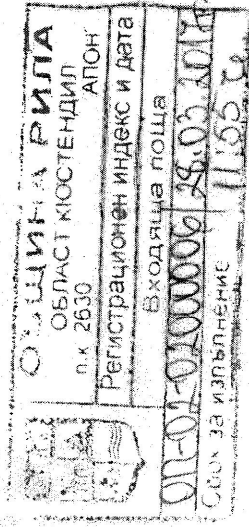 ОБЩИНА РИЛА
ОБЛАСТ КЮСТЕНДИЛ
п.к 2630 АПОН
Регистрационен индекс и дата
Входяща поща
ОП-02-0200006/28.03.2017г
Срок за изпълнение 11:55 ч